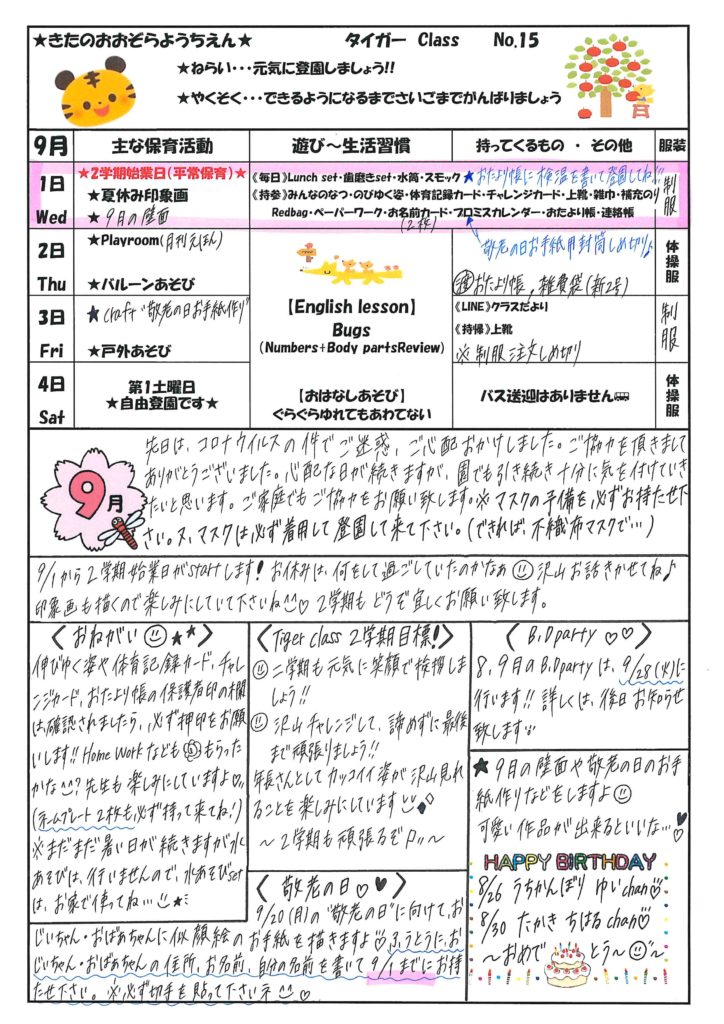 ★きたのおおぞらようちえん★ タイガー Class No.15
★ねらい・・・元気に登園しましょう!!
★やくそく・・・できるようになるまでさいごまでがんばりましょう
9月 主な保育活動 遊び～生活習慣 持ってくるもの ・ その他 服装
1日 Wed
★2学期始業日(平常保育)★
★夏休み印象画
★9月の壁面
《毎日》Lunch set・歯磨きset・水筒・スモック ★おたより帳に検温を書いて登園してね!!!
《持参》みんなのなつ・のびゆく姿・体育記録カード・チャレンジカード・上靴・雑巾・補充のり
Redbag・ペーパーワーク・お名前カード・プロミスカレンダー・おたより帳・連絡帳
(2枚)
制服
2日 Thu
★Playroom(月刊えほん)
★バルーンあそび
敬老の日お手紙用封筒しめ切り♪
おたより帳,雑費袋(新2号)
体操服
3日 Fri
★craft “敬老の日お手紙作り”
★戸外あそび
【English lesson】
Bugs
(Numbers+Body partsReview)
《LINE》クラスだより
《持帰》上靴
※制服注文しめ切り
制服
4日 Sat
第1土曜日
★自由登園です★
【おはなしあそび】
ぐらぐらゆれてもあわてない
バス送迎はありません
体操服
9月
先日は、コロナウイルスの件でご迷惑、ご心配おかけしました。ご協力を頂きまして
ありがとうございました。心配な日が続きますが、園でも引き続き十分に気を付けていき
たいと思います。ご家庭でもご協力をお願い致します。※マスクの予備を必ずお持たせ下
さい。又、マスクは必ず着用して登園して来て下さい。(できれば、不織布マスクで…)
9/1から2学期始業日がstartします! お休みは、何をして過ごしていたのかなぁ 沢山お話きかせてね♪
印象画も描くので楽しみにしていて下さいね♡ 2学期もどうぞ宜しくお願い致します。
〈おねがい ★★〉
伸びゆく姿や体育記録カード、チャレ
ンジカード、おたより帳の保護者印の欄
は確認されましたら、必ず押印をお願
いします!! Home Workなども もらった
かな?先生も楽しみにしていますよ♡
(ネームプレート2枚も必ず持って来てね!)
※まだまだ暑い日が続きますが水
あそびは、行いませんので、水あそびset
は、お家で使ってね…
〈Tiger class 2学期目標!〉
二学期も元気に笑顔で挨拶しま
しょう!!
沢山チャレンジして、諦めずに最後
まで頑張りましょう!!
年長さんとしてカッコイイ姿が沢山見れ
ることを楽しみにしています
～2学期も頑張るぞ～
〈B.D party ♡♡〉
8、9月のB.D partyは、9/28(火)に
行います!! 詳しくは、後日お知らせ
致します
★9月の壁面や敬老の日のお手
紙作りなどをしますよ
可愛い作品が出来るといいな…♥
HAPPY BIRTHDAY
8/26 うちかんぼり ゆいchan
8/30 たかき ちはるchan♡
～おめで とう～
〈敬老の日♡♥〉
9/20(月)の“敬老の日”に向けて、お
じいちゃん・おばあちゃんに似顔絵のお手紙を描きますよ♡ふうとうに、お
じいちゃん・おばあちゃんの住所、お名前、自分の名前を書いて9/1までにお持
たせ下さい。※必ず切手を貼って下さいネ♡。